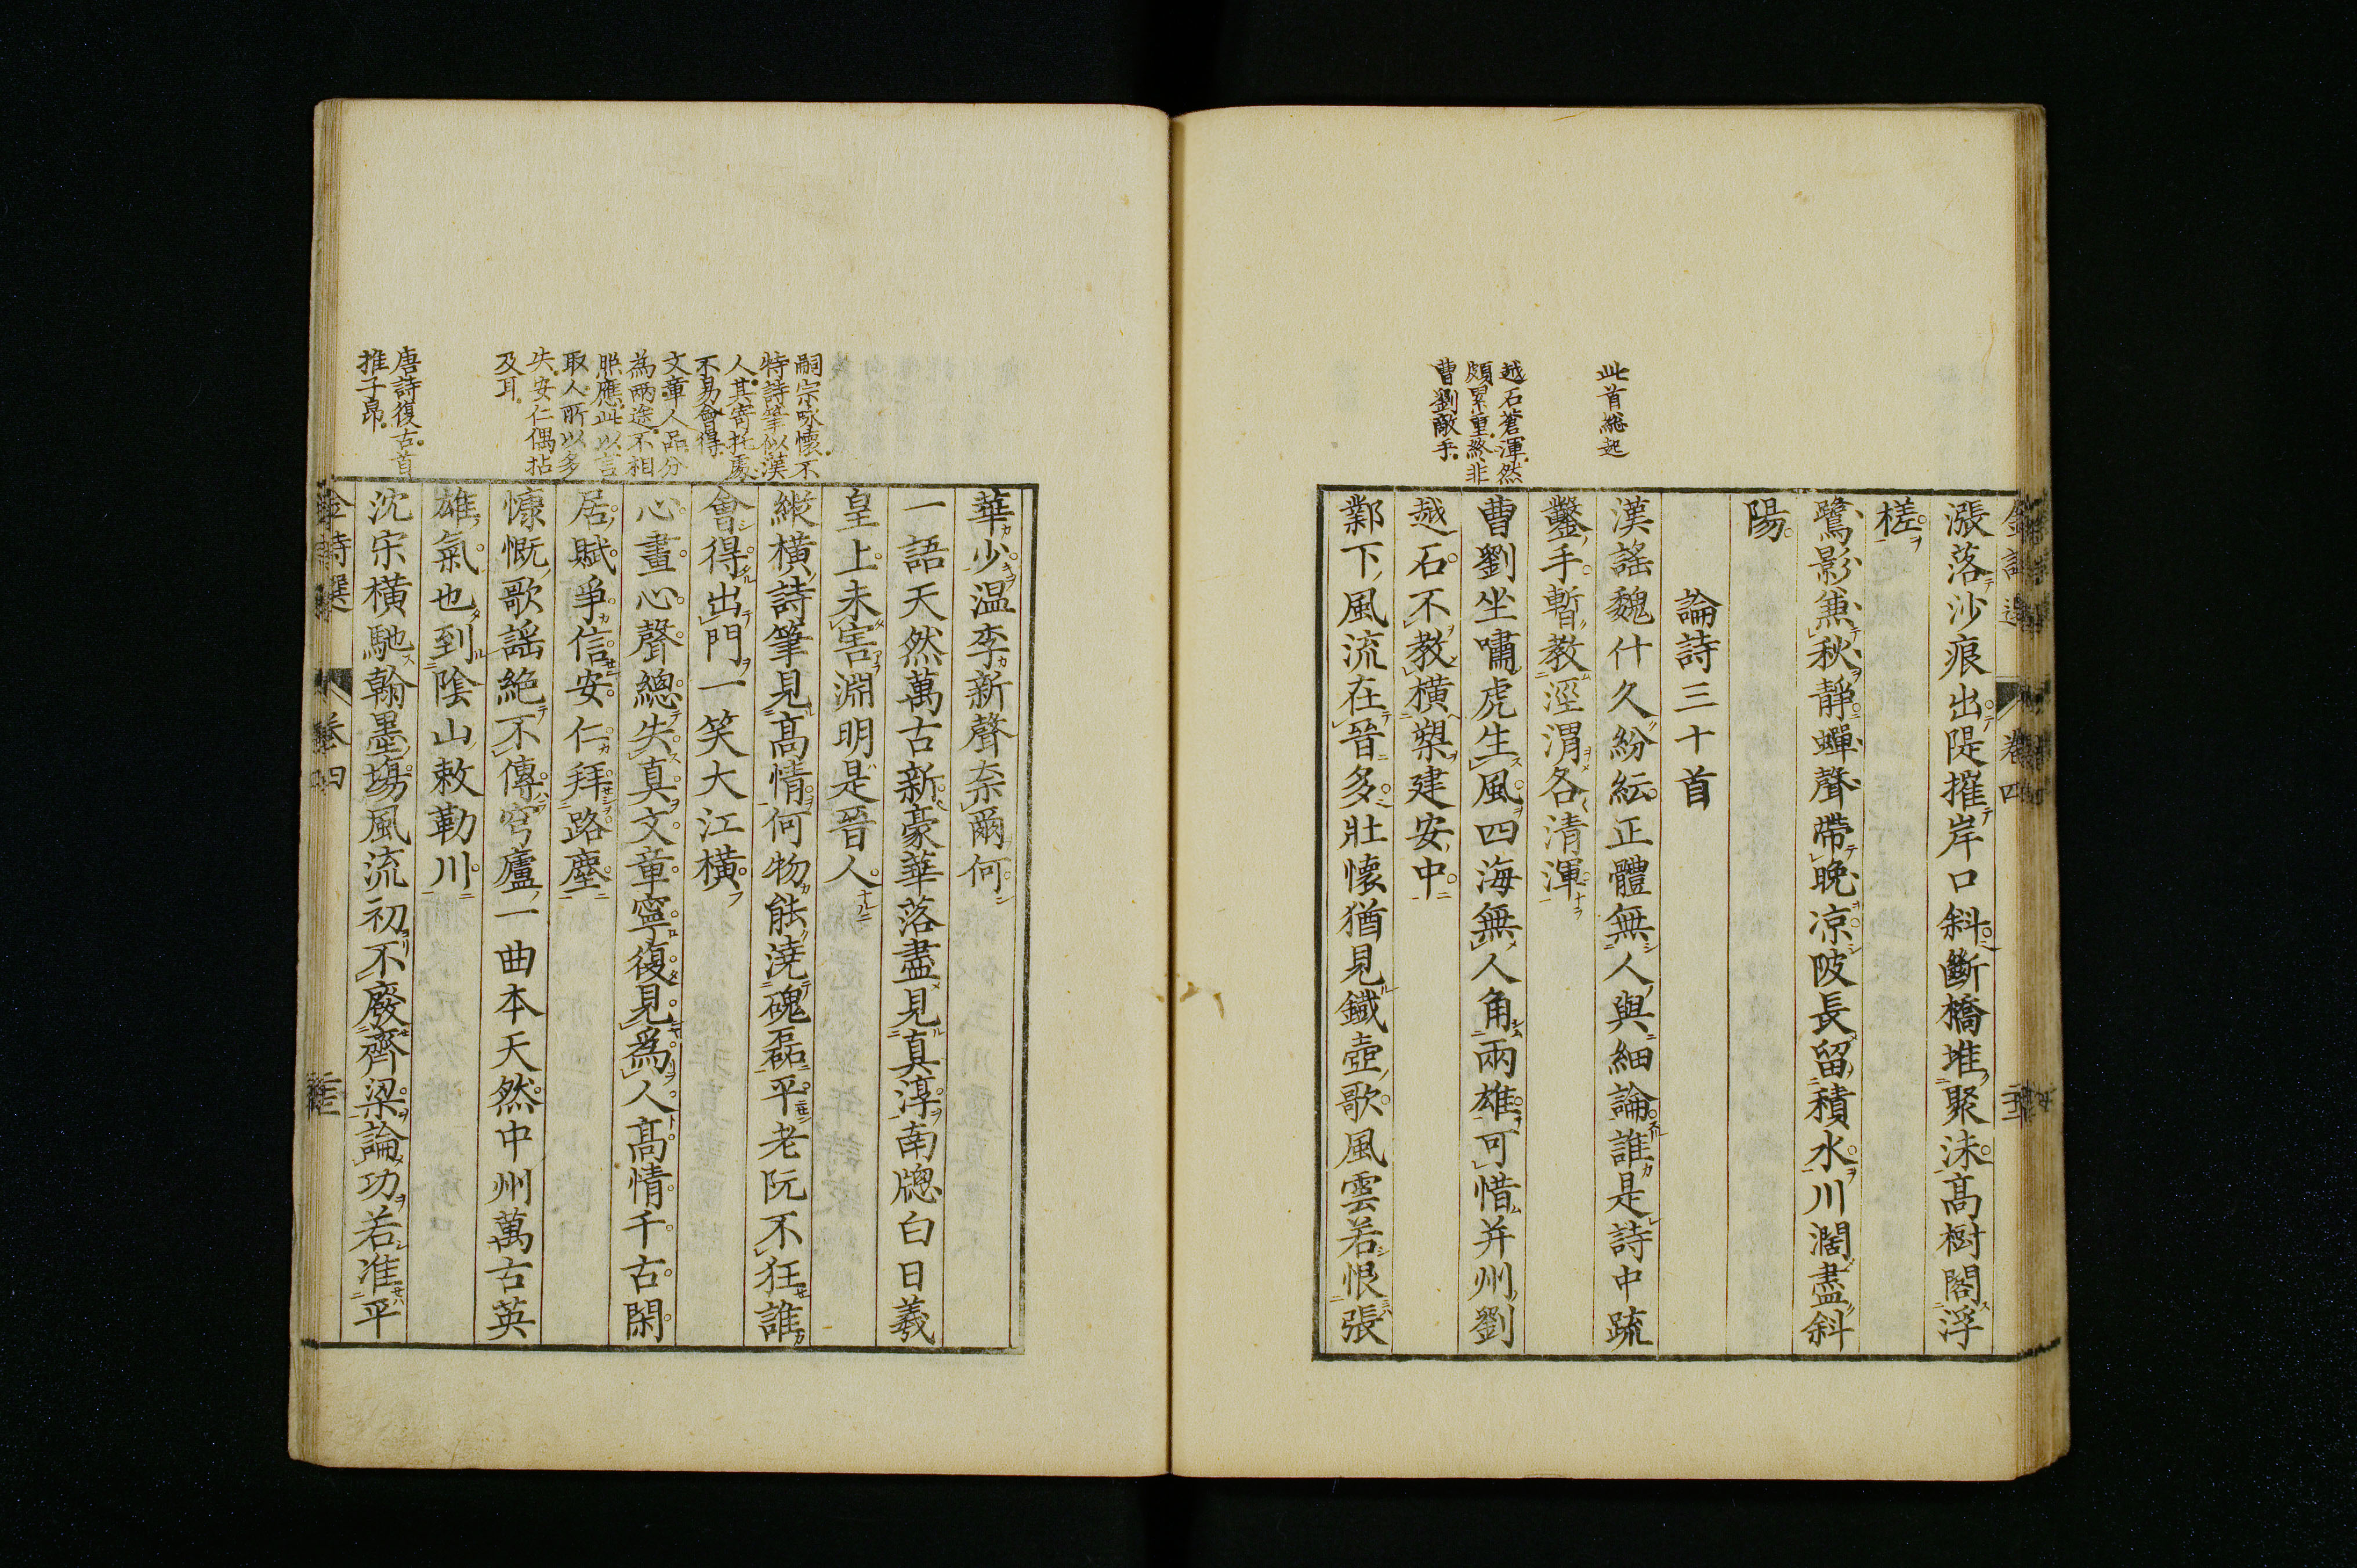 漲落沙痕出隄摧岸口斜斷橋堆聚沫髙樹閣浮
槎
鷺影兼秋靜蟬聲帶晩凉陂長留積水川濶盡斜
陽
論詩三十首
此首総起
漢謠魏什久紛紜正體無人與細論誰是詩中疏
鑿手暫教涇渭各清渾
越石蒼渾然
頗累重終非
曹劉敵手
曹劉坐嘯虎生風四海無人角兩雄可惜并州劉
越石不教橫槊建安中
鄴下風流在晉多壯懷猶見鐵壺歌風雲若恨張
華少温李新聲奈爾何
一語天然萬古新豪華落盡見真淳南牕白日羲
皇上未害淵明是晉人
嗣宗咏懷不
特詩筆似漢
人其寄托處
不易會得
縱橫詩筆見髙情何物能澆磈磊平老阮不狂誰
會得出門一笑大江橫
文章人品分
為兩途不相
照應此以言
取人所以多
失安仁偶拈
及耳
心畫心聲總失真文章寧復見爲人髙情千古閑
居賦爭信安仁拜路塵
慷慨歌謡絶不傳穹廬一曲本天然中州萬古英
雄氣也到陰山敕勒川
唐詩復古首
推子昻
沈宋横馳翰墨塲風流初不廢齊梁論功若准平
金詩選 卷四